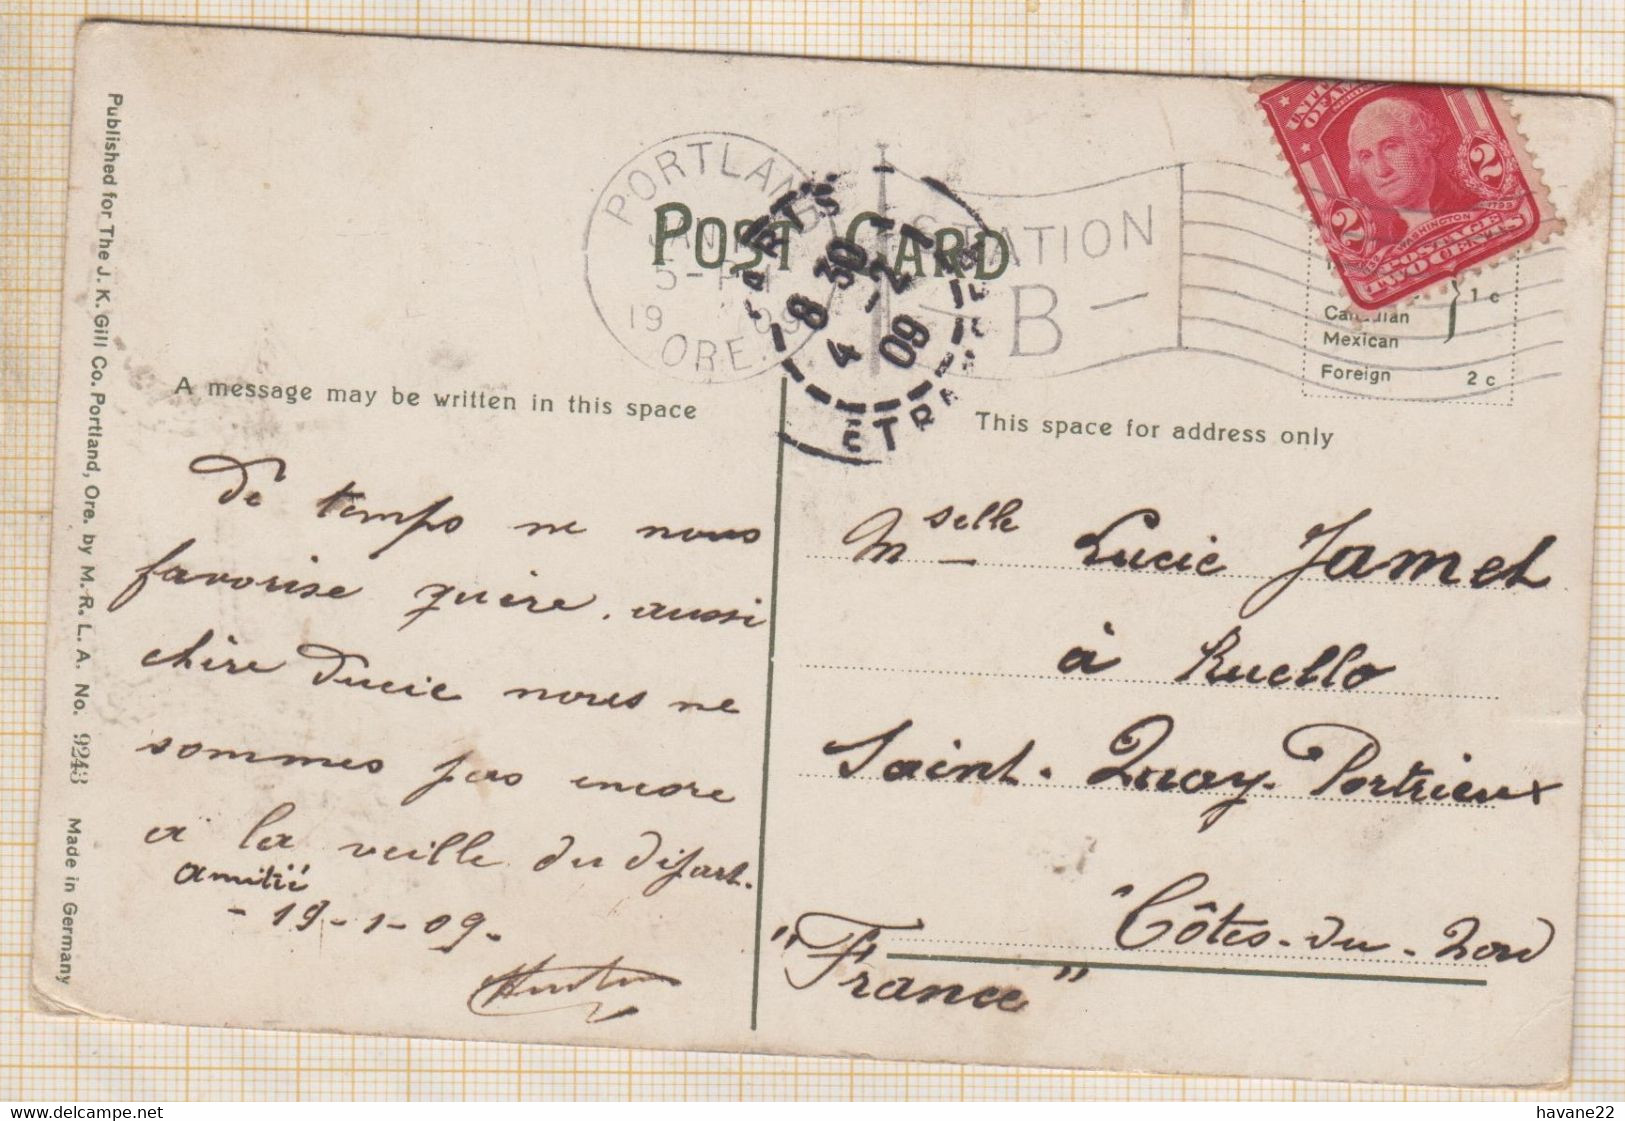 POST CARD
PORTLAND
JAN
5-PM
19 09
ORE.
STATION
B
PARIS
8 30
4 -2
09
ETRANGER
UNITED
OF AMERICA
2 2
WASHINGTON
POSTAGE
TWO CENTS
Canadian
Mexican
} 1 c
Foreign 2 c
A message may be written in this space
This space for address only
De temps ne nous
favorise guère. aussi
chère Lucie nous ne
sommes pas encore
à la veille du départ.
amitié
- 19-1-09.
Mselle Lucie Jamet
à Ruello
Saint. Quay. Portrieux
Côtes-du-Nord
"France"
Published for The J. K. Gill Co. Portland, Ore. by M. R. L. A. No. 9243 Made in Germany
havane22